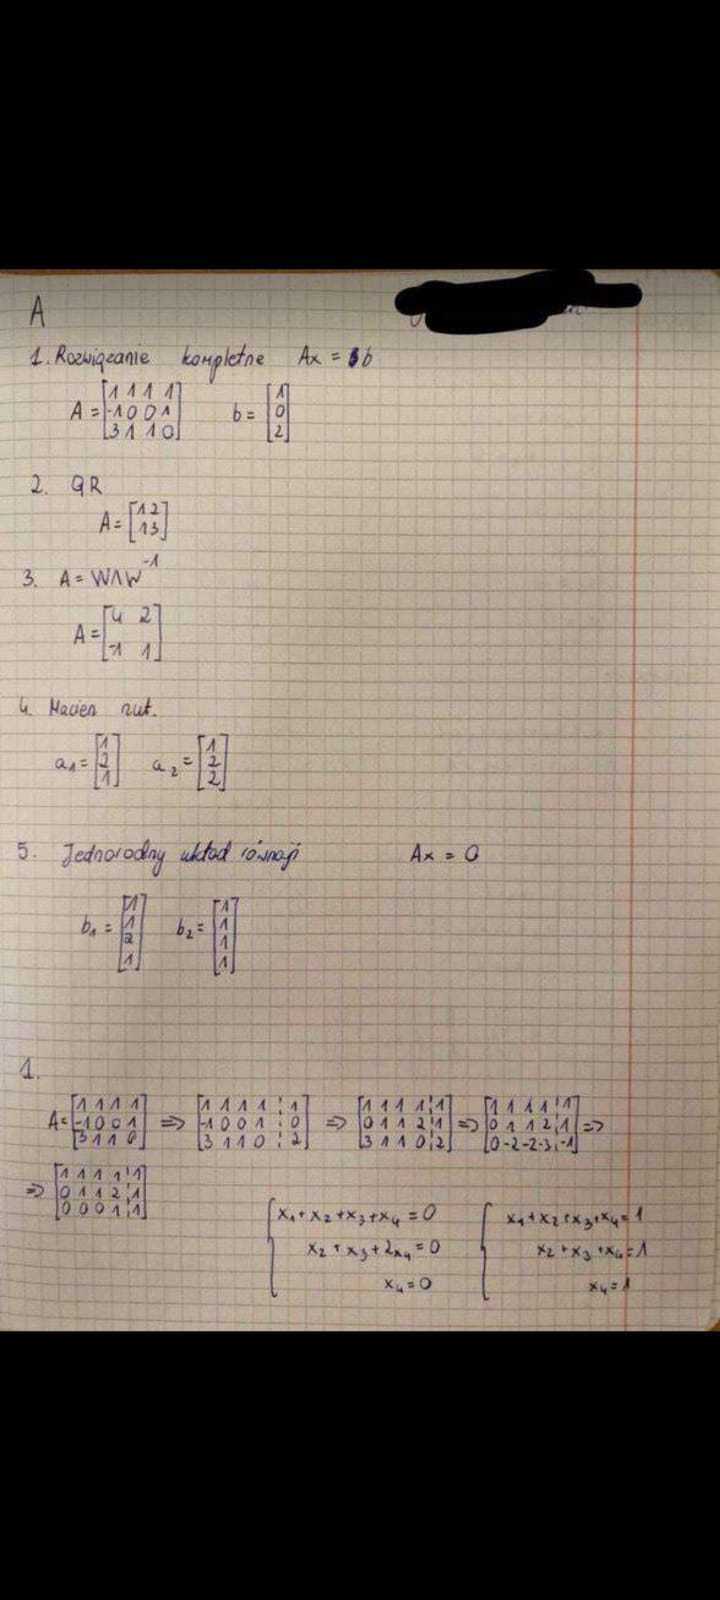 A
1. Rozwiązanie kompletne Ax = b
A = [1 1 1 1; -1 0 0 1; 3 1 1 0] b = [1; 0; 2]
2. QR
A = [1 2; 1 3]
3. A = WΛW^-1
A = [4 2; -1 1]
4. Macierz rzut.
a1 = [1; 2; 1] a2 = [1; 2; 2]
5. Jednorodny układ równań Ax = 0
b1 = [1; 1; 2; 1] b2 = [1; 1; 1; 1]
1.
A = [1 1 1 1; -1 0 0 1; 3 1 1 0] => [1 1 1 1 ¦ 1; -1 0 0 1 ¦ 0; 3 1 1 0 ¦ 2] => [1 1 1 1 ¦ 1; 0 1 1 2 ¦ 1; 3 1 1 0 ¦ 2] => [1 1 1 1 ¦ 1; 0 1 1 2 ¦ 1; 0 -2 -2 -3 ¦ -1] =>
=> [1 1 1 1 ¦ 1; 0 1 1 2 ¦ 1; 0 0 0 1 ¦ 1]
x1 + x2 + x3 + x4 = 0 x1 + x2 + x3 + x4 = 1
x2 + x3 + 2x4 = 0 x2 + x3 + x4 = 1
x4 = 0 x4 = 1